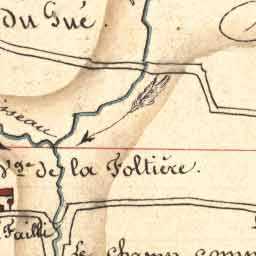 du Gué.
isseau
Vge. de la Foltière.
Failli
le champ comm